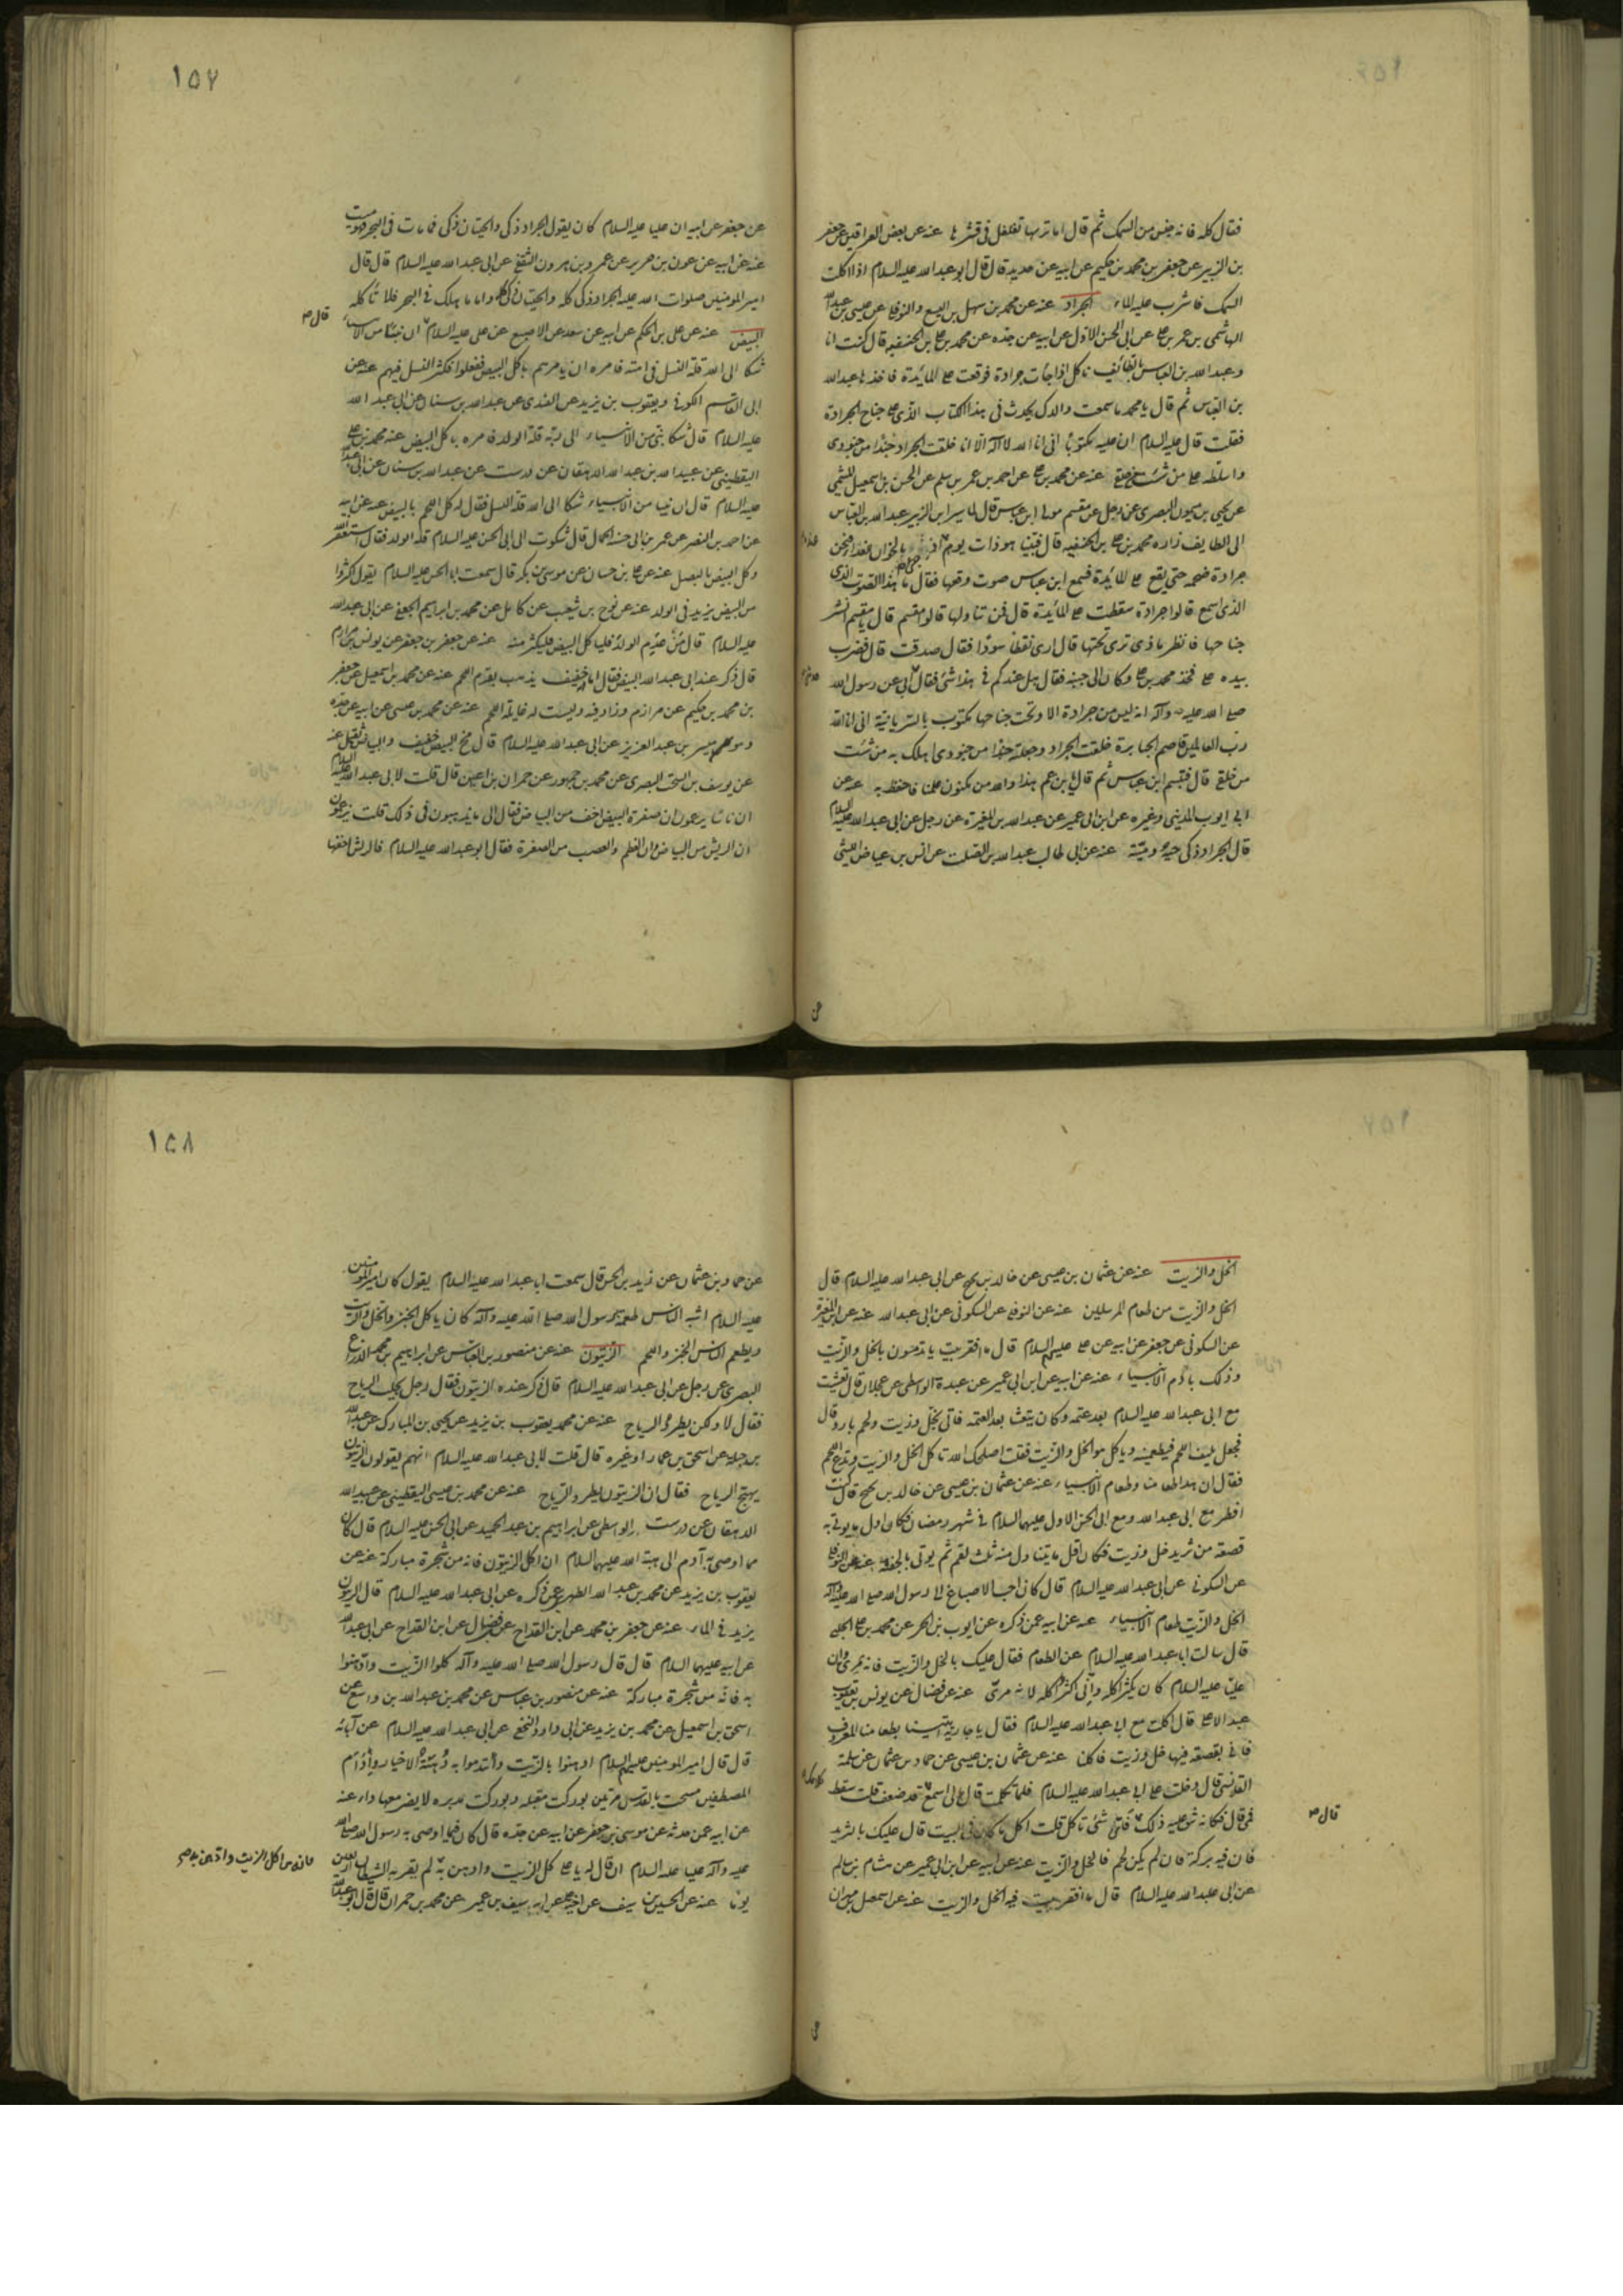 فقال كله فانه جنس من السمك ثم قال اما تريها تقلقل فى قشرها عنه عن بعض العراقيين عن جعفر
بن الزبير عن جعفر بن محمد بن حكيم عن ابيه عن حديد قال قال ابو عبد الله عليه السلام اذا اكلت
السمك فاشرب عليه الماء الجراد عنه عن محمد بن سهل بن اليسع والنوفلى عن عيسى بن عبد الله
الهاشمى بن عمر بن على عن ابى الحسن الاول عن ابيه عن جده عن محمد بن على بن الحنفيه قال كنت انا
وعبد الله بن العباس بالطائف ناكل اذا جأت جرادة فوقعت على المائدة فاخذها عبد الله
بن العباس ثم قال يا محمد ما سمعت والدك يحدث فى هذا الكتاب الذى على جناح الجرادة
فقلت قال عليه السلام ان عليه مكتوبا انى انا الله لا اله الا انا خلقت الجراد جندا من جنودى
واسلطه على من شئت من خلقى عنه عن محمد بن على عن احمد بن عمر بن سلم عن الحسن بن اسمعيل الميثمى
عن يحيى بن ميمون البصرى عن رجل عن مقسم مولى ابن عباس قال لما سير ابن الزبير عبد الله بن العباس
الى الطايف زاره محمد بن على بن الحنفيه قال فبينا هو ذات يوم اذ بالخوان
جرادة ضخمه حتى يقع على المائدة فسمع ابن عباس صوت وقعها فقال ما هذا الصوت الذى
الذى اسمع قالوا جرادة سقطت على المائدة قال فمن تناولها قالوا مقسم قال يا مقسم انشر
جناحها فانظر ماذى ترى تحتها قال ارى نقطا سودا فقال صدقت قال فضرب
بيده على فخذ محمد بن على وكان الى جنبه فقال هل عندكم فى هذا شئ فقال ابى عن رسول الله
صلى الله عليه وآله انه ليس من جرادة الا وتحت جناحها مكتوب بالسريانية انى انا الله
رب العالمين قاصم الجبابرة خلقت الجراد وجعلته جندا من جنودى اهلك به من شئت
من خلقى قال فتبسم ابن عباس ثم قال يا بن عم هذا والله من مكنون علمنا فاحتفظ به عنه عن
ابى ايوب المدينى وغيره عن ابن ابى عمير عن عبد الله بن المغيرة عن رجل عن ابى عبد الله عليه السلام
قال الجراد ذكى حيه وميته عنه عن ابى طالب عبد الله بن الصلت عن انس بن عياض الليثى
عن
١٥٧
عن جعفر عن ابيه ان عليا عليه السلام كان يقول الجراد ذكى والحيتان ذكى فما مات فى البحر فهو ميت
عنه عن ابيه عن عون بن حريز عن عمرو بن هرون الثقفى عن ابى عبد الله عليه السلام قال قال
امير المؤمنين صلوات الله عليه الجراد ذكى كله والحيتان ذكى كله واما ما هلك فى البحر فلا تاكله
البيض عنه عن على بن الحكم عن ابيه عن سعد عن الاصبغ عن على عليه السلام ان نبيا من الانبياء
قال صح
شكا الى الله قلة النسل فى امته فامره ان يامرهم باكل البيض ففعلوا فكثر النسل فيهم عنه عن
ابى القاسم الكوفى ويعقوب بن يزيد عن القندى عن عبد الله بن سنان عن ابى عبد الله
عليه السلام قال شكا نبى من الانبياء الى ربه قلة الولد فامره باكل البيض عنه محمد بن على
اليقطينى عن عبيد الله بن عبد الله الدهقان عن درست عن عبد الله بن سنان عن ابى عبد الله
عليه السلام قال ان نبيا من الانبياء شكا الى الله قلة النسل فقال له كل اللحم بالبيض عنه عن ابيه
عن احمد بن النضر عن عمر بن ابى حسنه الجمال قال شكوت الى ابى الحسن عليه السلام قلة الولد فقال استغفر الله
وكل البيض بالبصل عنه عن على بن حسان عن موسى بن بكر قال سمعت ابا الحسن عليه السلام يقول اكثروا
من البيض يزيد فى الولد عنه عن نوح بن شعيب عن كامل عن محمد بن ابراهيم الجعفى عن ابى عبد الله
عليه السلام قال من عدم الولد فلياكل البيض فليكثر منه عنه عن جعفر بن جعفر عن يونس بن مرازم
قال ذكر عند ابى عبد الله البيض فقال اما انه خفيف يذهب بقرم اللحم عنه عن محمد بن اسمعيل عن جعفر
بن محمد بن حكيم عن مرازم وزاد فيه وليست له غايلة اللحم عنه عن محمد بن عيسى عن ابيه عن جده
وهو ميسر بن عبد العزيز عن ابى عبد الله عليه السلام قال مح البيض خفيف والبياض ثقيل عنه
عن يوسف بن السخت البصرى عن محمد بن جمهور عن حمران بن اعين قال قلت لابى عبد الله عليه السلام
ان ناسا يزعمون ان صفرة البيض اخف من البياض فقال الى ما يذهبون فى ذلك قلت يزعمون
ان الريش من البياض وان العظم والعصب من الصفرة فقال ابو عبد الله عليه السلام فالريش اخفها
الخل والزيت عنه عن عثمان بن عيسى عن خالد بن نجيح عن ابى عبد الله عليه السلام قال
الخل والزيت من طعام المرسلين عنه عن النوفلى عن السكونى عن ابى عبد الله عنه عن ابن المغيرة
عن السكونى عن جعفر عن ابيه عن على عليهم السلام قال ما افقر بيت يا تدمون بالخل والزيت
وذلك بادم الانبياء عنه عن ابيه عن ابن ابى عمير عن عبدة الواسطى عن عجلان قال تعشيت
مع ابى عبد الله عليه السلام بعد عتمه وكان يتعشا بعد العتمه فاتى بخل وزيت ولحم بارد قال
فجعل ينتف اللحم فيطعمنيه وياكل هو الخل والزيت فقلت اصلحك الله تاكل الخل والزيت وتدع اللحم
فقال ان هذا طعامنا وطعام الانبياء عنه عن عثمان بن عيسى عن خالد بن نجيح قال كنت
افطر مع ابى عبد الله ومع ابى الحسن الاول عليهما السلام فى شهر رمضان فكان اول ما يوتى به
قصعة من ثريد خل وزيت فكان اقل ما يتناول منه ثلث لقم ثم يوتى بالجفنه عنه عن النوفلى
عن السكونى عن ابى عبد الله عليه السلام قال كان احب الاصباغ الى رسول الله صلى الله عليه وآله
الخل والزيت طعام الانبياء عنه عن ابيه عمن ذكره عن ايوب بن الحر عن محمد بن على الحلبى
قال سالت ابا عبد الله عليه السلام عن الطعام فقال عليك بالخل والزيت فانه مرى وان
عليا عليه السلام كان يكثر اكله وانى اكثر اكله لانه مرى عنه عن فضال عن يونس بن يعقوب
عبد الاعلى قال اكلت مع ابى عبد الله عليه السلام فقال يا جارية ايتينا بطعامنا المعروف
فاتى بقصعة فيها خل وزيت فاكلنا عنه عن عثمان بن عيسى عن حماد بن عثمان عن سلمة
القلانسى قال دخلت على ابى عبد الله عليه السلام فلما تكلمت قال لى اسمع قد ضعف قلت سقط
فمى قال فكانه شق عليه ذلك فاى شئ تاكل قلت اكل ما كان فى البيت قال عليك بالثريد
قال صح
فان فيه بركة فان لم يكن لحم فالخل والزيت عنه عن ابيه عن ابن ابى عمير عن هشام بن سالم
عن ابى عبد الله عليه السلام قال ما افقر بيت فيه الخل والزيت عنه عن اسمعيل بن مهران
عن
١٥٨
عن حماد بن عثمان عن زيد بن الحسن قال سمعت ابا عبد الله عليه السلام يقول كان امير المؤمنين
عليه السلام اشبه الناس طعمة برسول الله صلى الله عليه وآله كان ياكل الخبز والخل والزيت
ويطعم الناس الخبز واللحم الزيتون عنه عن منصور بن العباس عن ابراهيم بن محمد الذراع
البصرى عن رجل عن ابى عبد الله عليه السلام قال ذكر عنده الزيتون فقال رجل يجلب الرياح
فقال لا ولكن يطرد الرياح عنه عن محمد يعقوب بن يزيد عن يحيى بن المبارك عن عبد الله
بن جبلة عن اسحق بن عمار او غيره قال قلت لابى عبد الله عليه السلام انهم يقولون الزيتون
يهيج الرياح فقال ان الزيتون يطرد الرياح عنه عن محمد بن عيسى اليقطينى عن عبيد الله
الدهقان عن درست الواسطى عن ابراهيم بن عبد الحميد عن ابى الحسن عليه السلام قال كان
مما اوصى به آدم الى هبة الله عليهما السلام ان اكل الزيتون فانه من شجرة مباركة عنه عن
يعقوب بن يزيد عن محمد بن عبد الله عمن ذكره عن ابى عبد الله عليه السلام قال الزيتون
يزيد فى الماء عنه عن جعفر بن محمد عن ابن القداح عن ابن القداح عن ابى عبد الله
عن ابيه عليهما السلام قال قال رسول الله صلى الله عليه وآله كلوا الزيت وادهنوا
به فانه من شجرة مباركة عنه عن منصور بن عباس عن محمد بن عبد الله بن واسع عن
اسحق بن اسمعيل عن محمد بن يزيد عن ابى داود النخعى عن ابى عبد الله عليه السلام عن آبائه
قال قال امير المؤمنين عليهم السلام ادهنوا بالزيت وأتدموا به فانه دهنة الاخيار وادام
المصطفين مسحت بالقدس مرتين بوركت مقبله وبوركت مدبره لا يضر معها داء عنه
عن ابيه عمن حدثه عن موسى بن جعفر عن ابيه عن جده قال كان فيما اوصى به رسول الله صلى الله
عليه وآله عليا عليه السلام ان قال له يا على كل الزيت وادهن به لم يقربه الشيطان اربعين
فانه من اكل الزيت وادهن به صح
يوما عنه عن الحسين بن سيف عن اخيه على عن ابيه سيف بن عمير عن محمد بن حمران قال قال ابو عبد الله